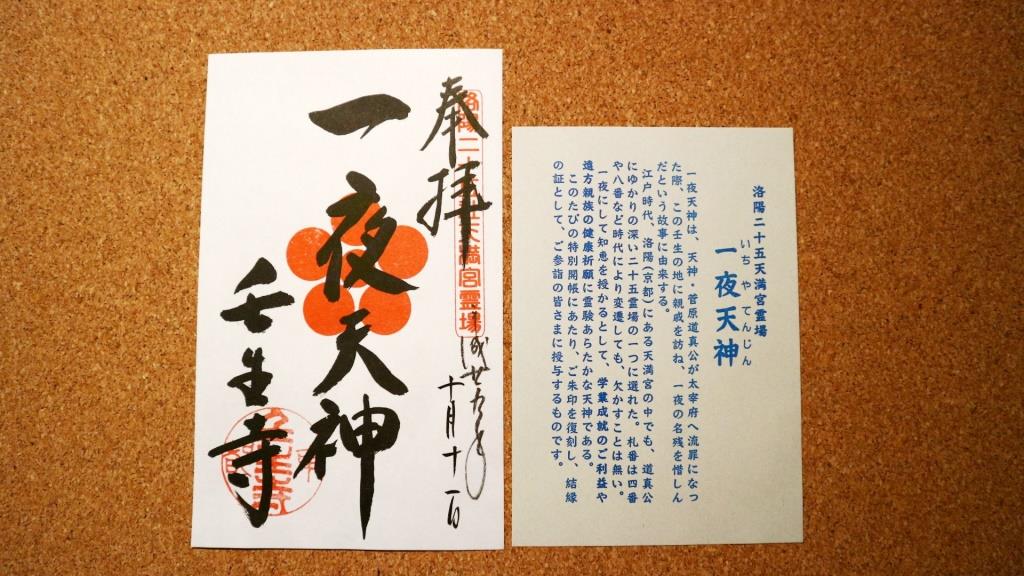 奉拝
洛陽二十五社天満宮霊場
平成廿九年
十月十一日
一夜天神
壬生寺
洛陽二十五天満宮霊場
いちやてんじん
一夜天神
一夜天神は、天神・菅原道真公が太宰府へ流罪になっ
た際、この壬生の地に親戚を訪ね、一夜の名残を惜しん
だという故事に由来する。
江戸時代、洛陽(京都)にある天満宮の中でも、道真公
にゆかりの深い二十五霊場の一つに選れた。札番は四番
や八番など時代により変遷しても、欠かすことは無い。
一夜にして知恵を授かるとして、学業成就のご利益や
遠方親族の健康祈願に霊験あらたかな天神である。
このたびの特別開帳にあたり、ご朱印を復刻し、結縁
の証として、ご参詣の皆さまに授与するものです。